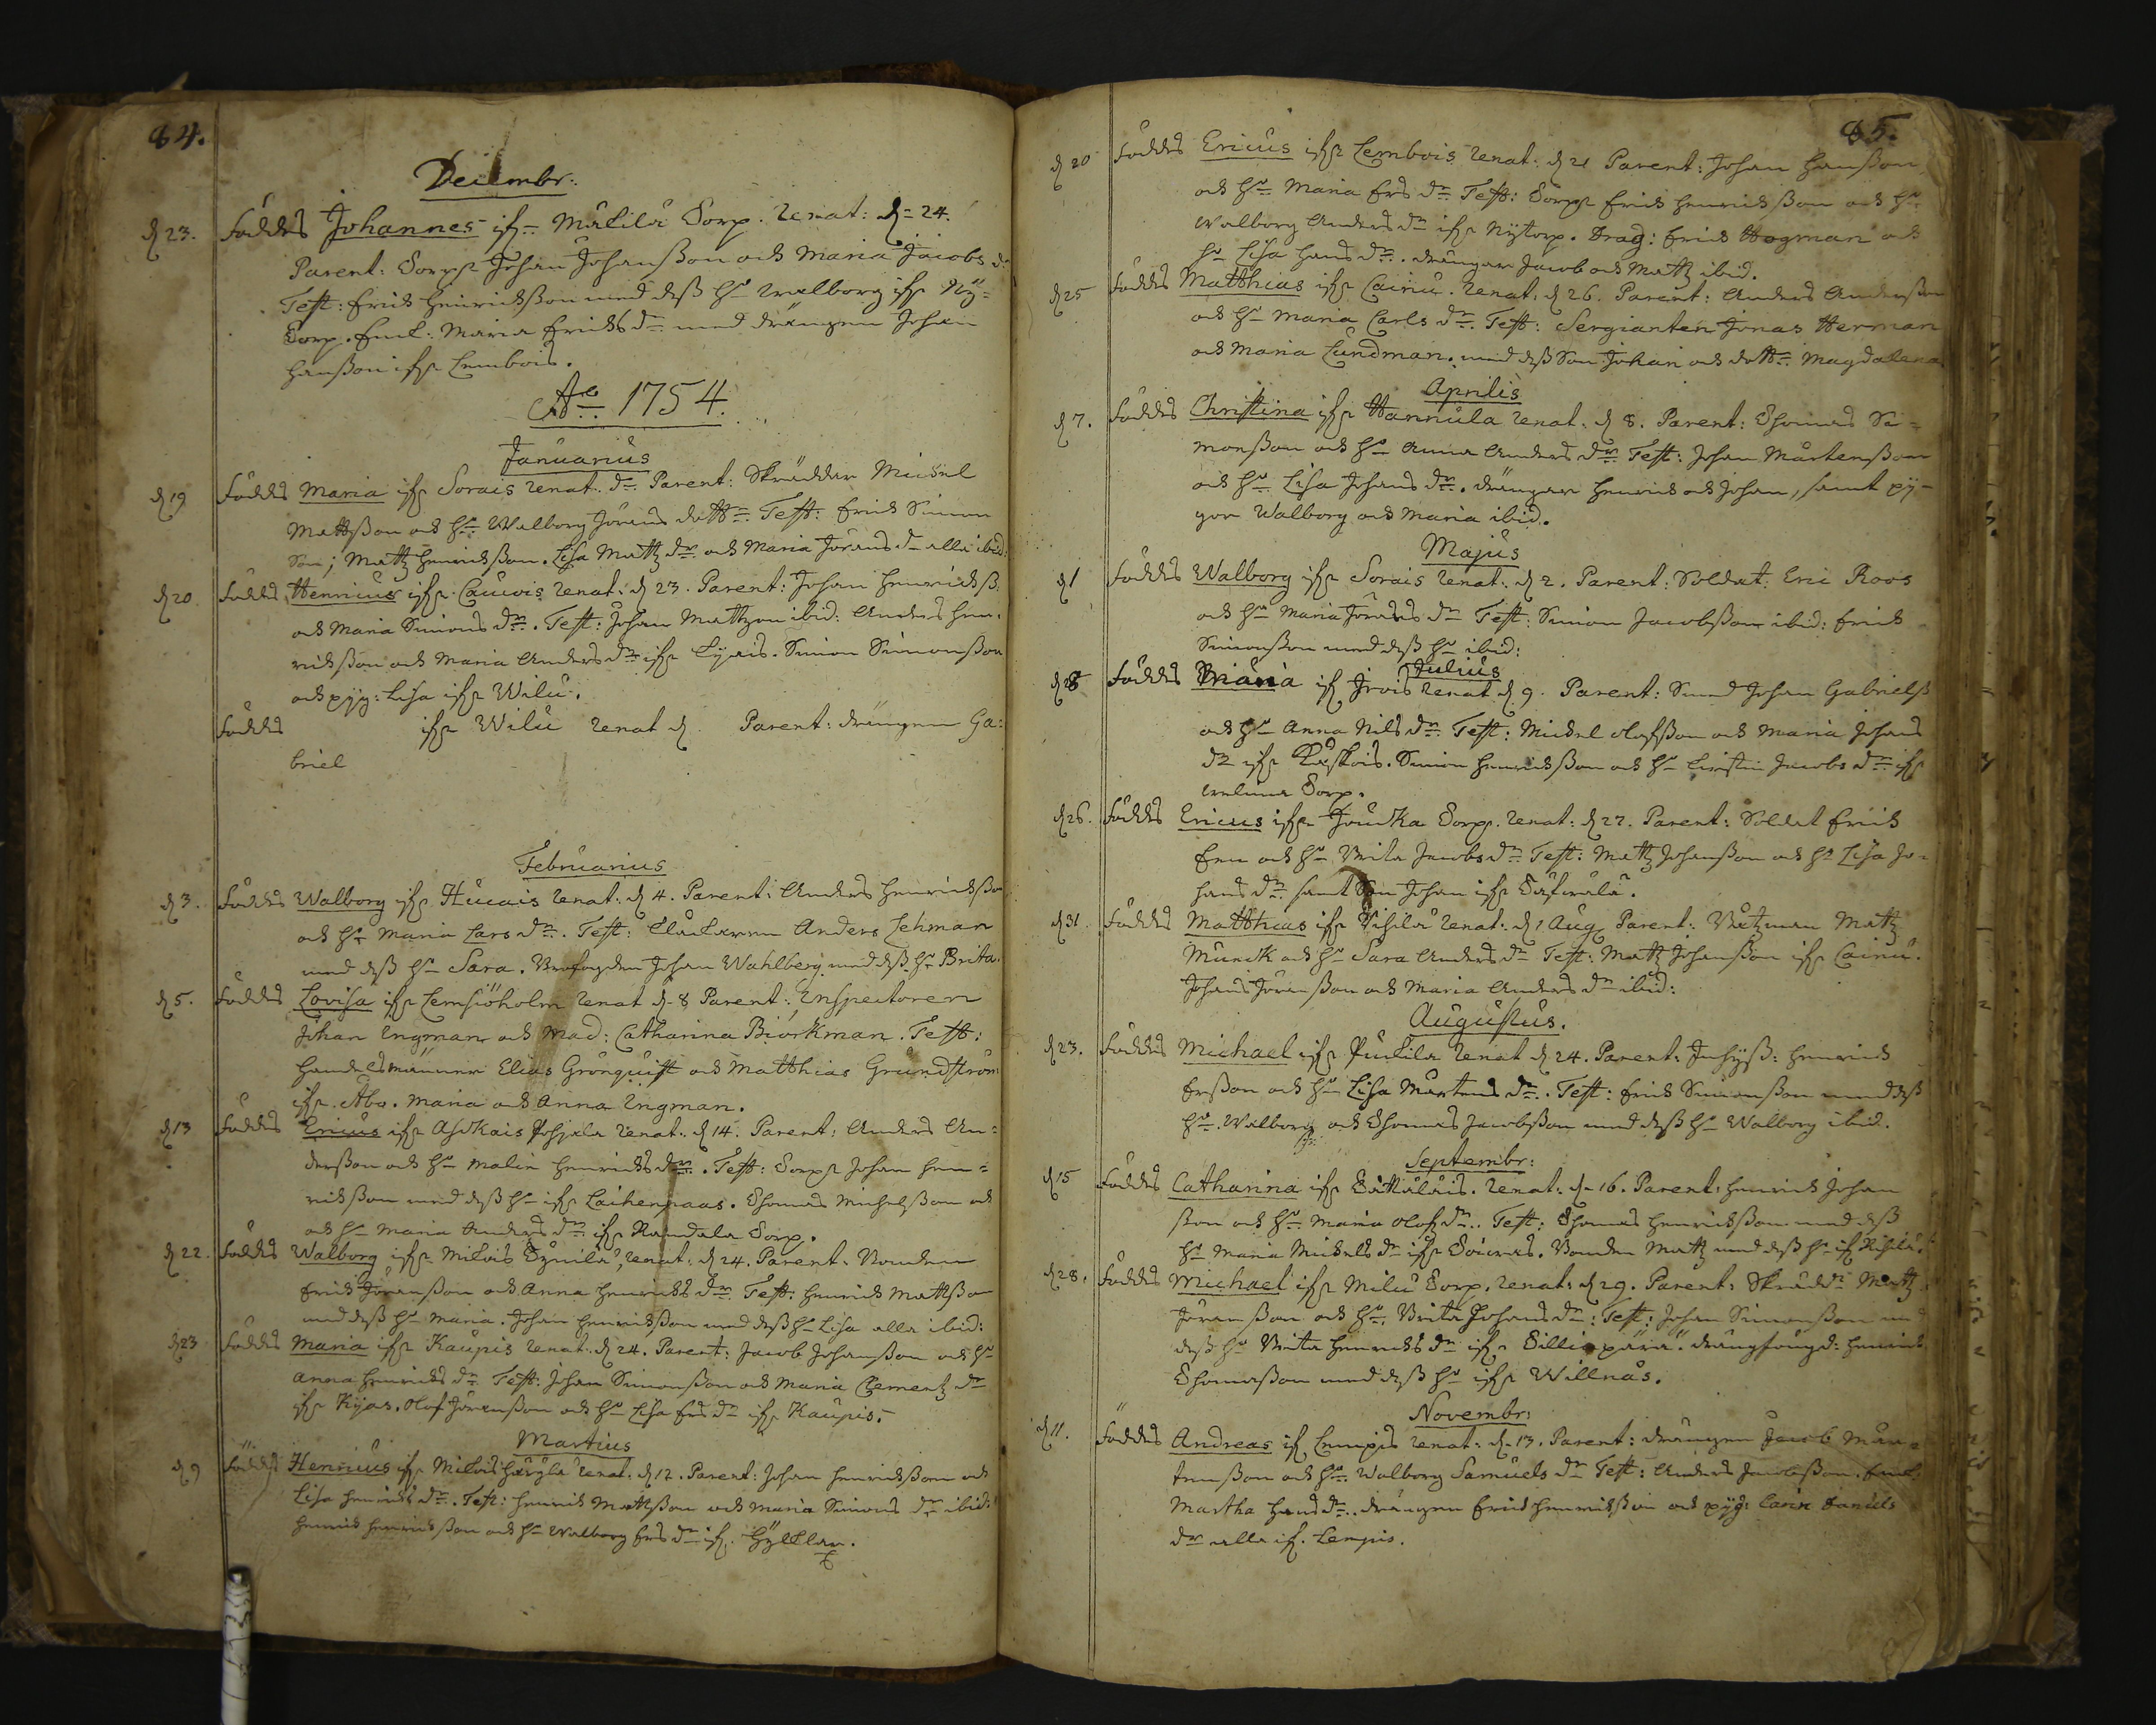 84.
Decembr:
d 23. Föddes Johannes ifr. Måkila Torp. Renat: d. 24.
Parent: Torp:r Johan Johansson och Maria Jacobs dr
Test: Erich Henricksson med dess hu Walborg ifr Ny-
Torp. Enck: Maria Erichs dr med drängen Johan
Hansson ifr Lembois.
Ao 1754.
Januarius
d 19 Föddes Maria ifr Sorais Renat. d. Parent: Skräddar Michel
Mattsson och hu Walborg Jörans dotter. Test: Erich Simon
Son; Matz Henricksson. Lisa Matz dr och Maria Jörans dr alla ibid:
d 20 Föddes Henricus ifr Cauvois Renat: d 23. Parent: Johan Henrickss:
och Maria Simons dr. Test: Johan Mattzon ibid: Anders Hen-
ricksson och Maria Anders dr ifr Cyais. Simon Simonsson
och pyg: Lisa ifr Wilu.
Föddes ifr Wilu Renat d Parent: drängen Ga:
briel
Februarius
d 3. Föddes Walborg ifr Hucais Renat: d 4. Parent: Anders Henricksson
och hu Maria Lars dr. Test: Klockaren Anders Lehman
med dess hu Sara. Johan Wahlberg med dess hu Brita.
d 5. Föddes Lovisa ifr Lemsiöholm Renat d. 8 Parent: Inspectoren
Johan Ingman och Mad: Catharina Biörkman. Test:
Handelsmännen Elias Grönquist och Matthias Grundström
ifr. Åbo. Maria och Anna Ingman.
d 13 Föddes Ericus ifr Askais Pohjala Renat: d 14. Parent: Anders An-
dersson och hu Malin Henrichs dr. Test: Torp:r Johan Hen-
ricksson med dess hu ifr Laihenpaas. Thomas Michelsson och
och hu Maria Anders dr ifr Randala Torp.
d 22. Föddes Walborg ifr Milois Renat: d 24. Parent: Bonden
Erich Jöransson och Anna Henrichs dr. Test: Henrich Mattsson
med dess hu Maria. Johan Henricksson med dess hu Lisa alla ibid:
d 23 Föddes Maria ifr Kaupis Renat: d 24. Parent: Jacob Johansson och hu
Anna Henrichs dr. Test: Johan Simonsson och Maria Clementz dr
ifr Kyas. Olof Jöransson och hu Lisa Ers dr ifr Kaupis.
Martius
d 9 Föddes Henricus ifr Milois Renat: d 12. Parent: Johan Henricksson och
Lisa Henrichs dr. Test: Henrich Mattsson och Maria Simons dr ibid:
Henrich Henricksson och hu Walborg Ers dr ifr.
85.
d 20 Föddes Ericus ifr Lembois Renat: d 21 Parent: Johan Hansson
och hu Maria Ers dr Test: Torp:r Erich Henricksson och hu
Walborg Anders dr ifr Nytorp. Drag: Erich Hogman och
hu Lisa Hans dr. drängar Jacob och Matz ibid.
d 25 Föddes Matthias ifr Cainu. Renat: d 26. Parent: Anders Andersson
och hu Maria Carls dr. Test: Sergianten Jonas Herman
och Maria Lundman. med dess Son Johan och dotter Magdalena
Aprilis
d 7. Föddes Christina ifr Hannula Renat: d 8. Parent: Thomas Si-
monsson och hu Anna Anders dr. Test: Johan Mårtensson
och hu Lisa Johans dr. drängar Henrich och Johan, samt py-
gor Walborg och Maria ibid.
Majus
d 1 Föddes Walborg ifr Sorais Renat: d 2. Parent: Soldat: Eric Roos
och hu Maria Jörans dr Test: Simon Jacobsson ibid: Erich
Simonsson med dess hu ibid:
Julius
d 8 Föddes Maria ifr Irois Renat d 9. Parent: Smed Johan Gabrielss
och hu Anna Nils dr. Test: Michel Olofsson och Maria Johans
dr ifr Simon Henricksson och hu Cristin Jacobs dr ifr
Torp.
d 26. Föddes Ericus ifr Jouka Torp. Renat: d 27. Parent: Soldat Erich
Een och hu Brita Jacobs dr Test: Matz Johansson och hu Lisa Jo-
hans dr samt Son Johan ifr
d 31. Föddes Matthias ifr Renat: d 1 Aug Parent: Båtzman Matz
Munck och hu Sara Anders dr Test: Matz Johansson ifr Cainu.
Johan Jöransson och Maria Anders dr ibid:
Augustus.
d 23. Föddes Michael ifr Renat d 24. Parent: Inhyss: Henrich
Ersson och hu Lisa Mårtens dr. Test: Erich Simonsson med dess
hu. Walborg och Thomas Jacobsson med dess hu Walborg ibid.
Septembr:
d 15 Föddes Catharina ifr Renat: d. 16. Parent: Henrich Johan
sson och hu Maria Olofs dr. Test: Thomas Henricksson med dess
hu Maria Michels dr ifr Bonden Matz med dess hu ifr
d 28. Föddes Michael ifr Milu Torp. Renat: d 29. Parent: Skrädd:r Matz
Jöransson och hu. Brita Johans dr: Test: Johan Simonsson med
dess hu Brita Henrichs dr ifr Henrich
Thomasson med dess hu ifr Willnäs.
Novembr:
d 11. Föddes Andreas ifr Lempis Renat: d. 13. Parent: drängen Jacob Mår-
tensson och hu Walborg Samuels dr Test: Anders Jacobsson. Enck:
Martha Hans dr. drängen Erich Henricksson och pyg: Carin Daniels
dr alla ifr. Lempis.